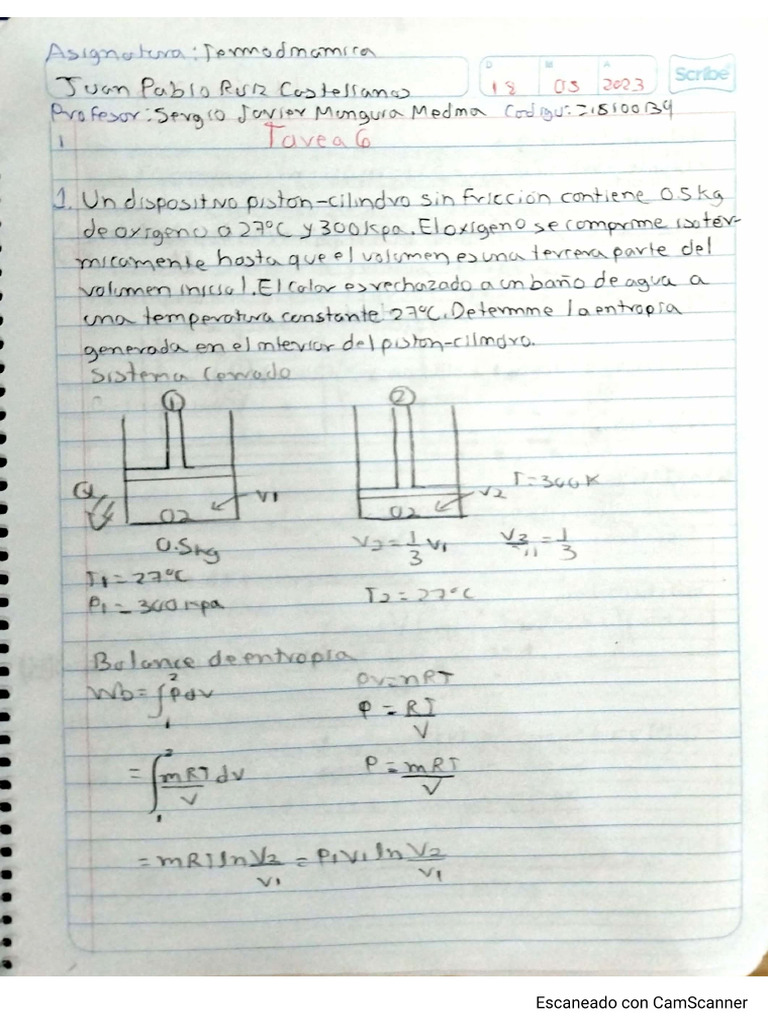 Asignatura: Termodnamica
D M A
18 03 2023
Scribe
Juan Pablo Ruiz Castellanos
Profesor: Sergio Javier Mungura Medma Codigu:
Tarea 6
1. Un dispositivo piston-cilindro sin friccion contiene 0.5kg
de oxigeno a 27°C y 300kpa. El oxigeno se comprime isotér-
micamente hasta que el volumen es una tercera parte del
volumen inicial. El calor es rechazado a un baño de agua a
una temperatura constante 27°C. Determme la entropia
generada en el interior del piston-cilindro.
Sistema Cerrado
1 2
Q O2 V1 O2 V2 T=300K
0.5kg V2=1/3 V1 V2/V1=1/3
T1=27°C T2=27°C
P1=300kpa
Balance de entropia
Wb=∫₁² Pdv Pv=nRT
P=RT/V
=∫₁² mRT/V dv P=mRT/V
=mRT ln V2/V1 = P1V1 ln V2/V1
Escaneado con CamScanner